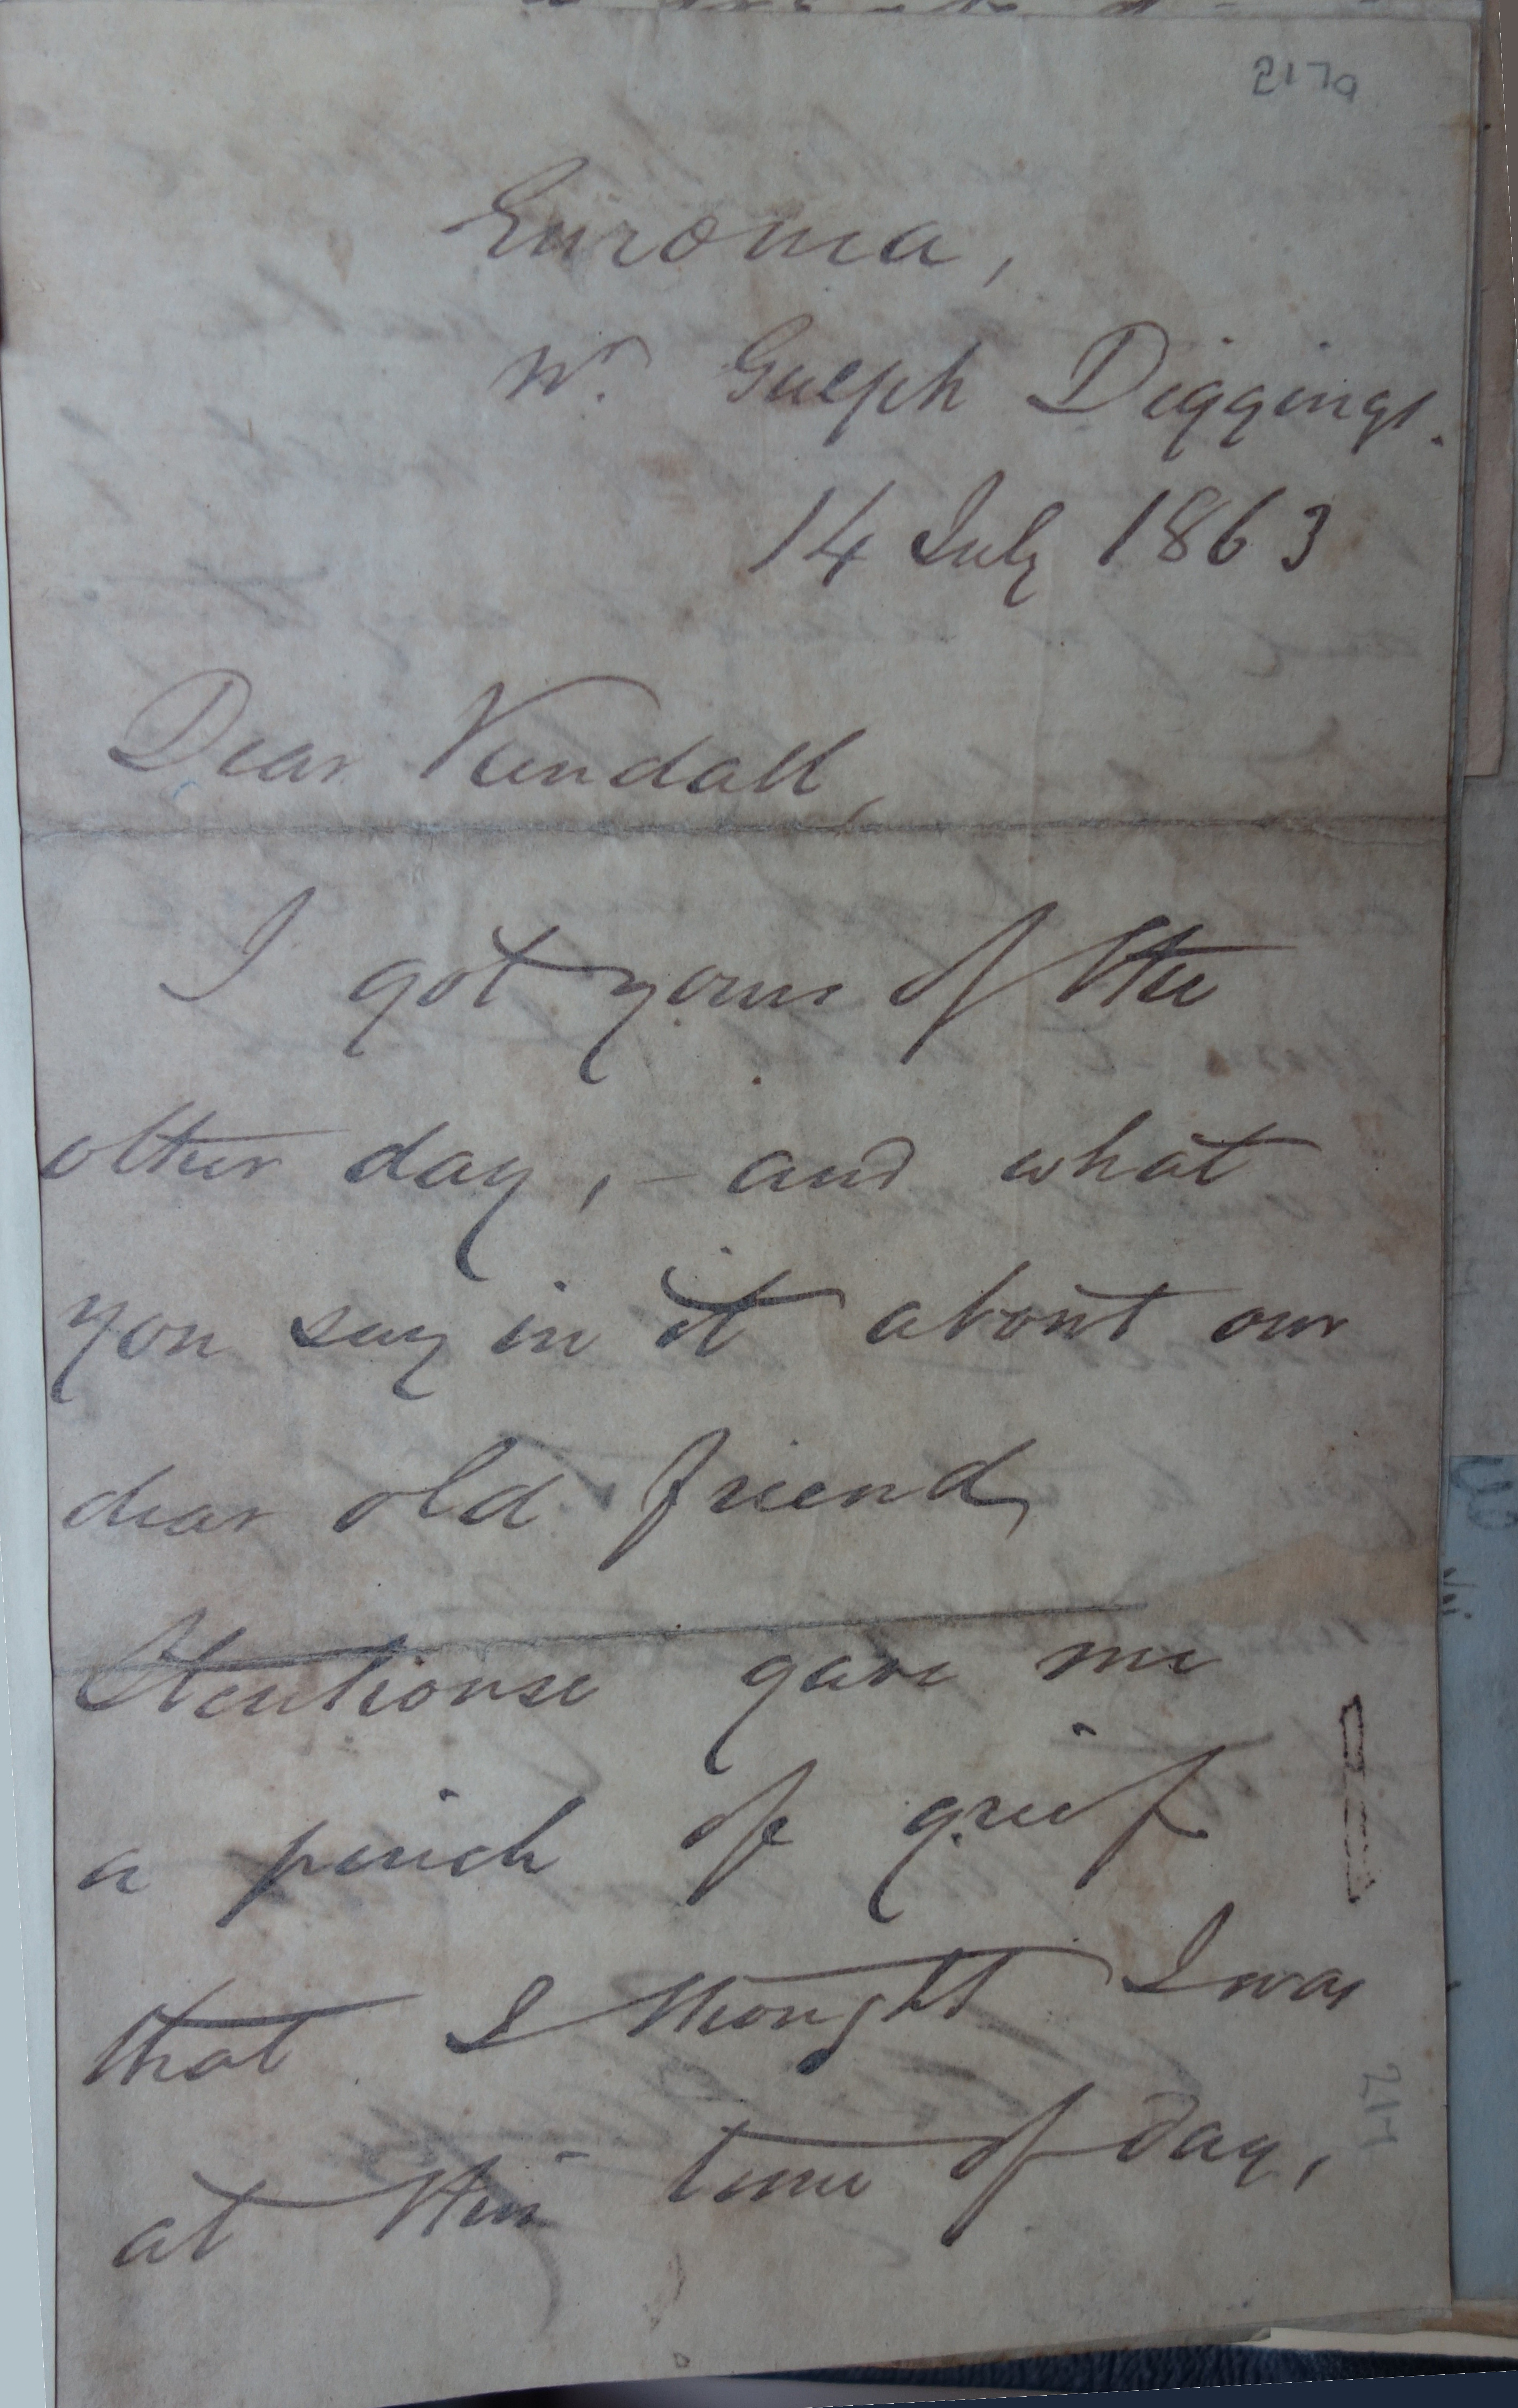 217a
Euroma,
Nr. Guelph Diggings.
14 July 1863
Dear Kendall,
I got yours of the
other day, - and what
you say in it about our
dear old friend
Stenhouse gave me
a pinch of grief
that I thought I was
at this time of day,
217